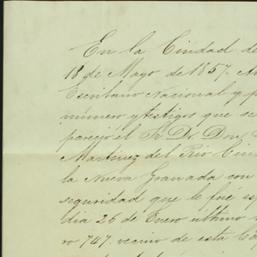 En la Ciudad de
18 de Mayo de 1857. An
Escribano Nacional y p
número y testigos que se
pareció el Sr. Dr. Don
Martinez del Rio Ciu
la Nueva Granada con
seguridad que le fué es
dia 26 de Enero ultimo
ro 747. vecino de esta Ca